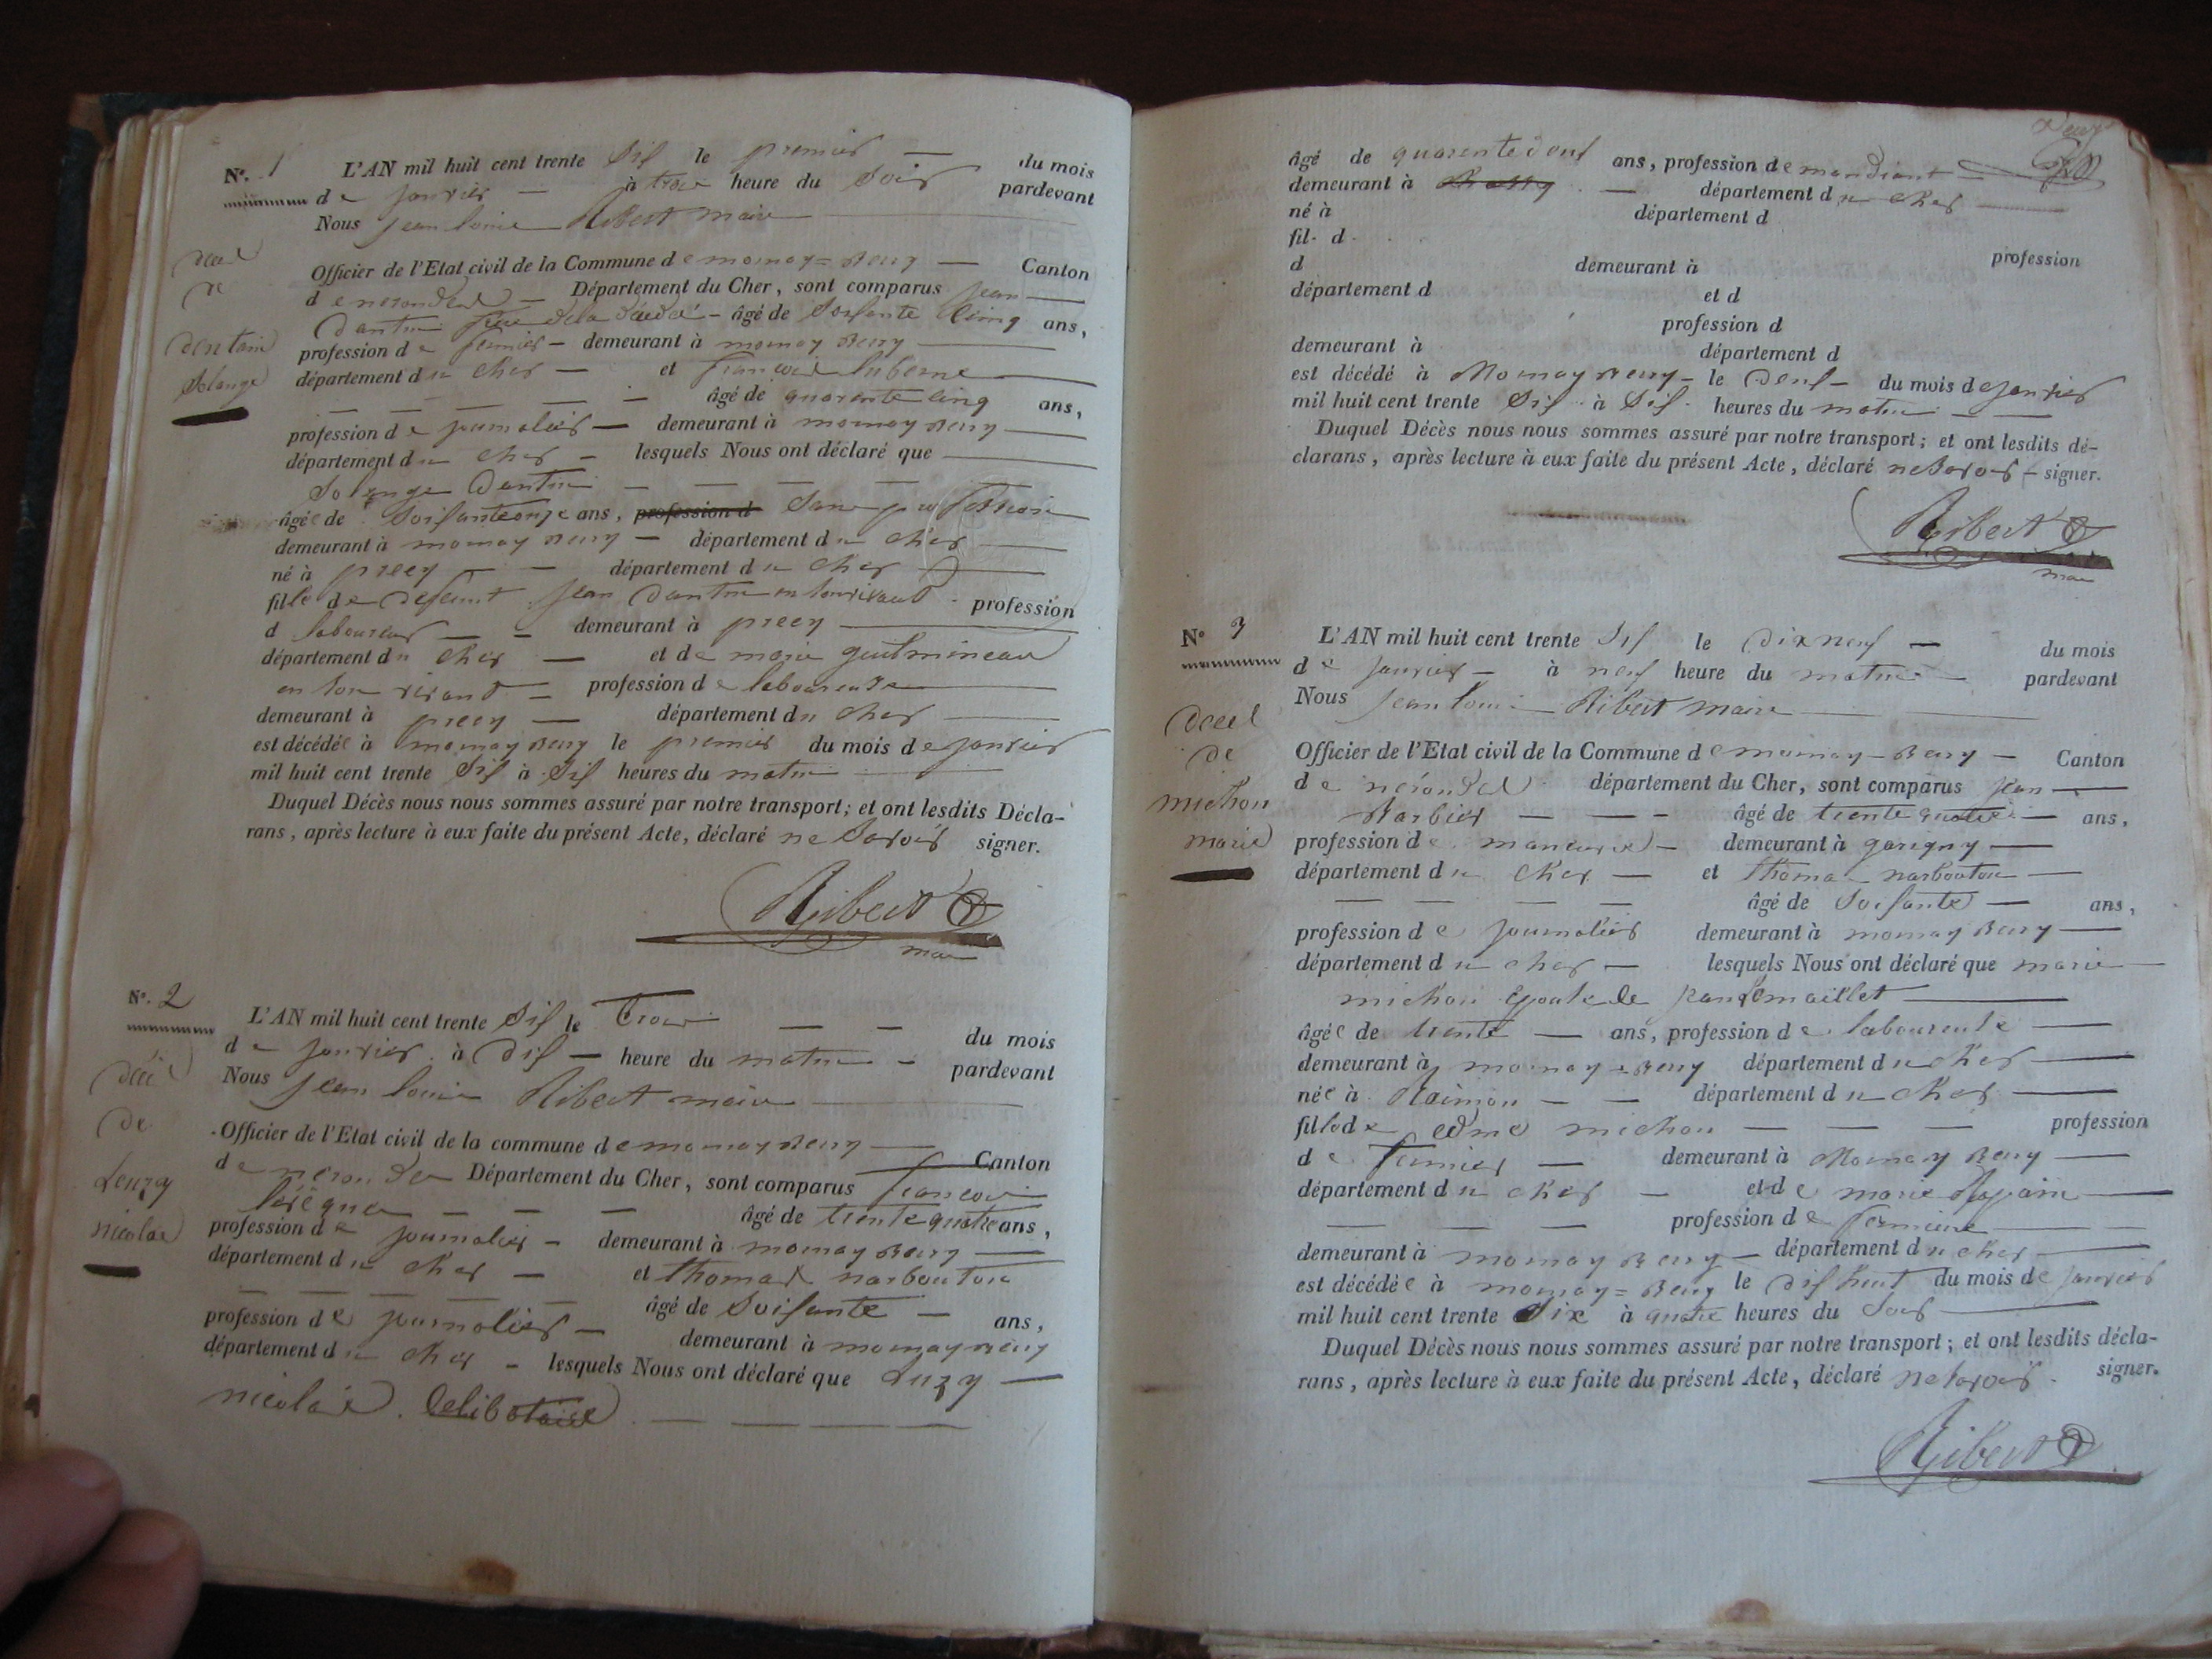 N°. 1 L'AN mil huit cent trente Six le premier — du mois
de janvier — à trois heure du Soir pardevant
Nous jean louis Ribert maire
décès
de
dentain
Solange
Officier de l'Etat civil de la Commune de mornay=Berry — Canton
de nerondes — Département du Cher, sont comparus jean
dantin frère de la décédé - âgé de Soisante Cinq ans,
profession de fermier — demeurant à mornay Berry
département du Cher — et francois
âgé de quarente cinq ans,
profession de journalier — demeurant à mornay Berry
département du Cher — lesquels Nous ont déclaré que
Solange Dantin
âgée de Soisanteonze ans, profession d Sans profession
demeurant à mornay Berry — département du Cher
né à precy département du Cher
fille de defeunt jean Dantin en son vivant profession
d laboureur — demeurant à precy
département du Cher — et de marie
en son vivant — profession de laboureuse
demeurant à precy — département du Cher
est décédée à mornay Berry le premier du mois de janvier
mil huit cent trente Six à Six heures du matin
Duquel Décès nous nous sommes assuré par notre transport; et ont lesdits Décla-
rans, après lecture à eux faite du présent Acte, déclaré ne Savoir signer.
Ribert
maire
N°. 2 L'AN mil huit cent trente Six le trois — du mois
de janvier à dix — heure du matin — pardevant
Nous jean louis Ribert maire
décès
de
Leuzy
nicolas
Officier de l'Etat civil de la commune de mornay Berry — Canton
de nerondes Département du Cher, sont comparus francois
lévêque — âgé de trente quatre ans,
profession de journalier — demeurant à mornay Berry
département du Cher — et thomas narbouton
âgé de Soisante — ans,
profession de journalier — demeurant à mornay Berry
département du Cher — lesquels Nous ont déclaré que Luzy —
nicolas Celibataire
âgé de quarentedeux ans, profession de mendiant
demeurant à — département du Cher
né à département d
fil d
d demeurant à profession
département d et d
profession d
demeurant à département d
est décédé à Mornay Berry — le deux — du mois de janvier
mil huit cent trente Six à Six heures du matin
Duquel Décès nous nous sommes assuré par notre transport; et ont lesdits dé-
clarans, après lecture à eux faite du présent Acte, déclaré ne Savoir — signer.
Ribert
maire
N° 3 L'AN mil huit cent trente Six le dix neuf — du mois
de janvier — à neuf heure du matin — pardevant
Nous jean louis Ribert maire
décès
de
michon
marie
Officier de l'Etat civil de la Commune de mornay — Berry — Canton
de nérondes département du Cher, sont comparus jean —
Barbier — âgé de trente quatre — ans,
profession de manœuvre — demeurant à garigny —
département du Cher — et thomas narbouton —
âgé de Soisante — ans,
profession de journalier demeurant à mornay Berry —
département du Cher — lesquels Nous ont déclaré que marie —
michon Epouse de jean
âgée de trente — ans, profession de laboureuse —
demeurant à mornay=Berry département du Cher —
née à Raimon — département du Cher —
fille de edme michon — profession
de fermier — demeurant à Mornay Berry —
département du Cher — et de marie —
profession de fermiere
demeurant à mornay Berry — département du Cher —
est décédée à mornay=Berry le dix huit du mois de janvier
mil huit cent trente Six à quatre heures du Soir —
Duquel Décès nous nous sommes assuré par notre transport; et ont lesdits décla-
rans, après lecture à eux faite du présent Acte, déclaré ne Savoir signer.
Ribert